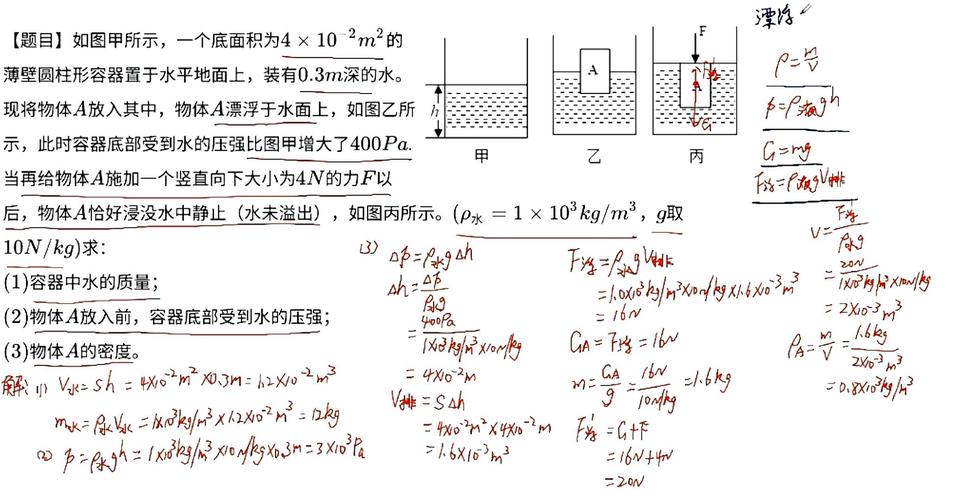 【题目】如图甲所示，一个底面积为4 × 10⁻²m²的
薄壁圆柱形容器置于水平地面上，装有0.3m深的水。
现将物体A放入其中，物体A漂浮于水面上，如图乙所
示，此时容器底部受到水的压强比图甲增大了400Pa.
当再给物体A施加一个竖直向下大小为4N的力F以
后，物体A恰好浸没水中静止（水未溢出），如图丙所示。(ρ水 = 1 × 10³kg/m³，g取
10N/kg)求：
(1)容器中水的质量；
(2)物体A放入前，容器底部受到水的压强；
(3)物体A的密度。
h
甲
A
乙
F
F浮
A
G
丙
漂浮
ρ=m/V
p=ρ液gh
G=mg
F浮=ρ液gV排
解: (1) V水=Sh=4×10⁻²m²×0.3m=1.2×10⁻²m³
m水=ρ水V水=1×10³kg/m³×1.2×10⁻²m³=12kg
(2) p=ρ水gh=1×10³kg/m³×10N/kg×0.3m=3×10³Pa
(3) Δp=ρ水gΔh
Δh=Δp/ρ水g
=400Pa/1×10³kg/m³×10N/kg
=4×10⁻²m
V排=SΔh
=4×10⁻²m²×4×10⁻²m
=1.6×10⁻³m³
F浮=ρ水gV排
=1.0×10³kg/m³×10N/kg×1.6×10⁻³m³
=16N
GA=F浮=16N
m=GA/g=16N/10N/kg=1.6kg
F浮'=G+F
=16N+4N
=20N
V=F浮'/ρ水g
=20N/1×10³kg/m³×10N/kg
=2×10⁻³m³
ρA=m/V=1.6kg/2×10⁻³m³
=0.8×10³kg/m³